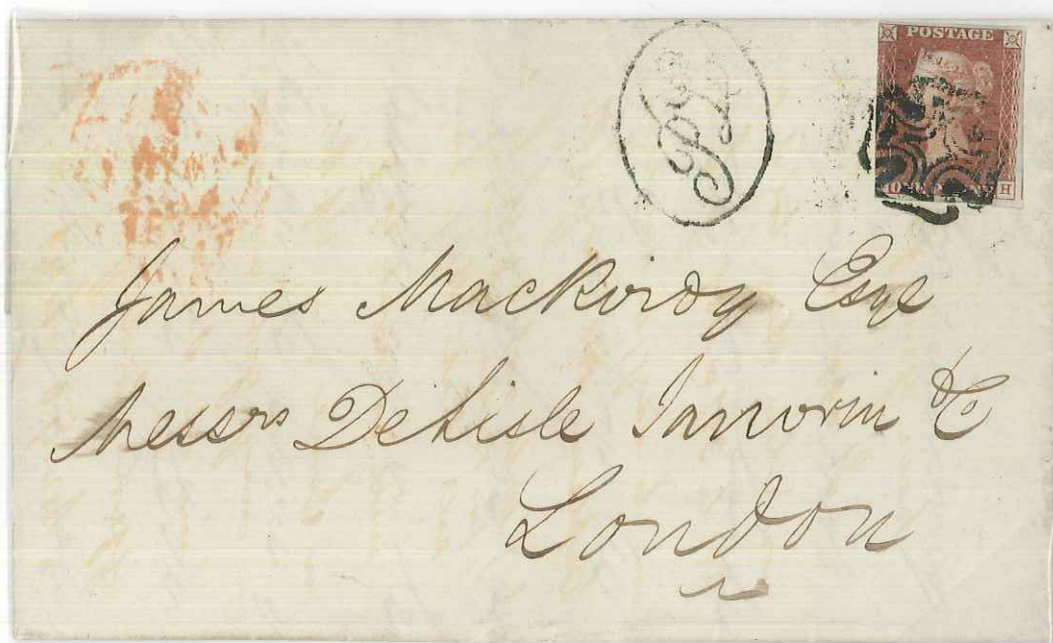 POSTAGE
H
James Mackirdy Esqe
Messrs DeLisle Janvrin & C
London